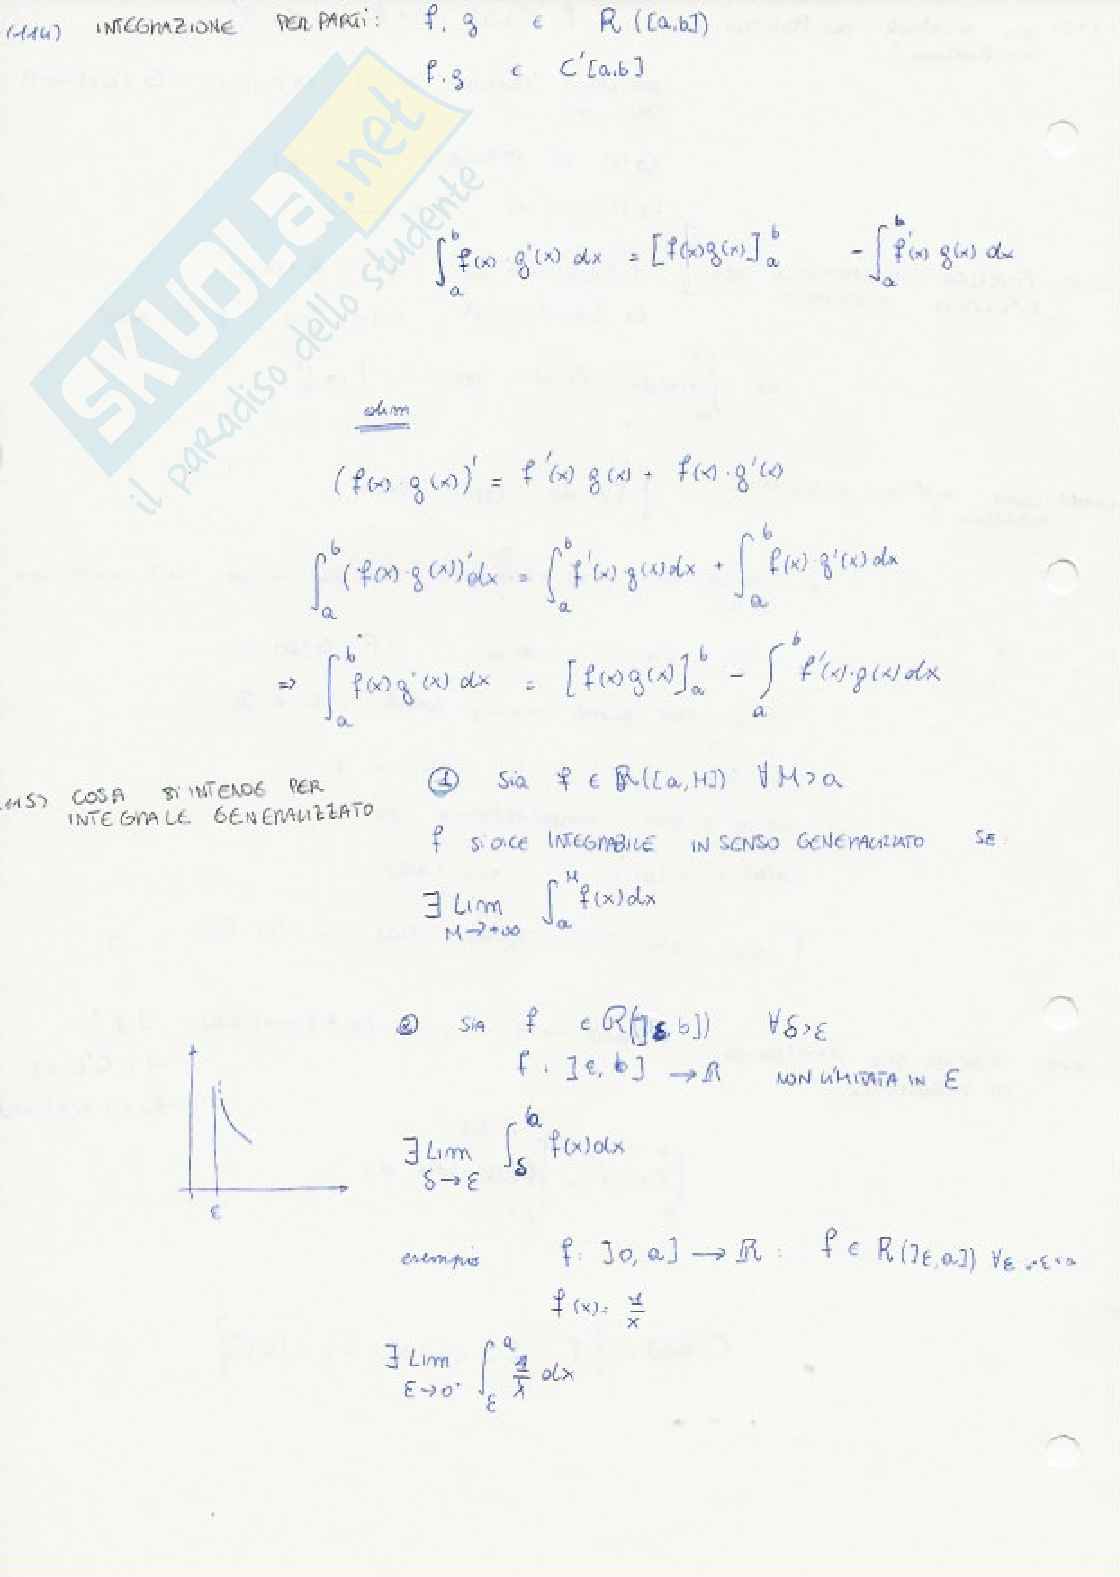 (114) INTEGRAZIONE PER PARTI: f, g ∈ R([a,b])
f, g ∈ C'[a,b]
SKUOLA.net
il paradiso dello studente
∫_a^b f(x) · g'(x) dx = [f(x)g(x)]_a^b - ∫_a^b f'(x) g(x) dx
dim
(f(x) · g(x))' = f'(x) g(x) + f(x) · g'(x)
∫_a^b (f(x) · g(x))' dx = ∫_a^b f'(x) g(x) dx + ∫_a^b f(x) · g'(x) dx
⇒ ∫_a^b f(x) g'(x) dx = [f(x) g(x)]_a^b - ∫_a^b f'(x) · g(x) dx
115) COSA SI INTENDE PER
INTEGRALE GENERALIZZATO
① Sia f ∈ R([a,M]) ∀M>a
f SI DICE INTEGRABILE IN SENSO GENERALIZZATO SE
∃ Lim_{M→+∞} ∫_a^M f(x)dx
② SIA f ∈ R(]δ,b]) ∀δ>ε
f: ]ε,b] → R NON LIMITATA IN ε
∃ Lim_{δ→ε} ∫_δ f(x)dx
ε
esempio f: ]0,a] → R: f ∈ R(]ε,a]) ∀ε
f(x)= 1/x
∃ Lim_{ε→0} ∫_ε^a 1/x dx